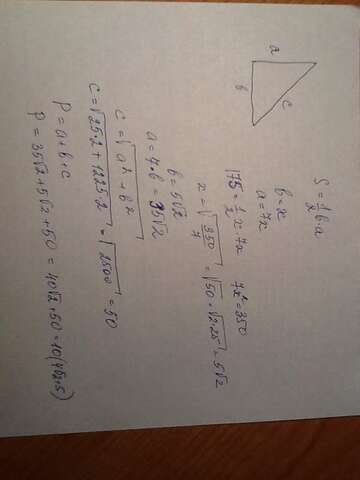 a
b
c
S = 1/2 ba
b = x
a = 7x
175 = 1/2 x 7x 7x² = 350
x = √(350/7) = √50 = √(2·25) = 5√2
b = 5√2
a = 7·b = 35√2
c = √(a² + b²)
c = √(25·2 + 1225·2) = √2500 = 50
P = a + b + c
P = 35√2 + 5√2 + 50 = 40√2 + 50 = 10(4√2 + 5)